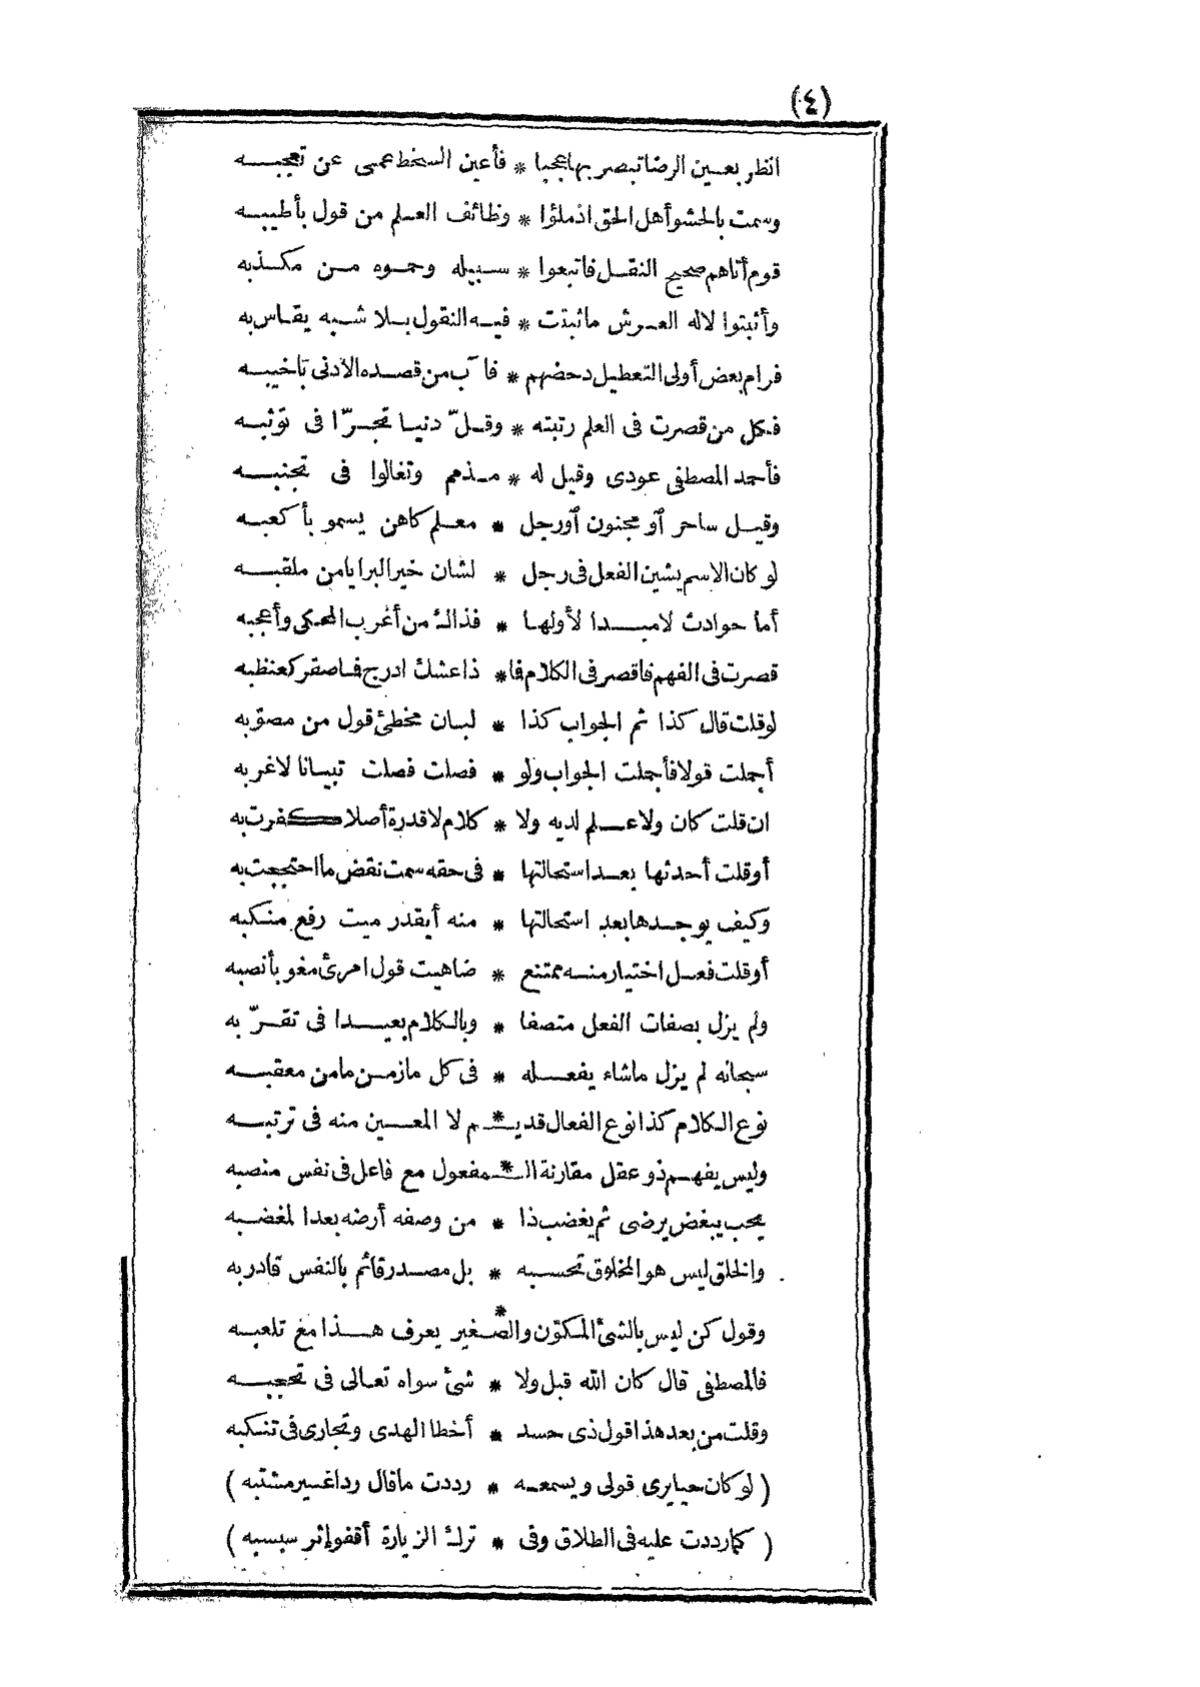 (٤)
انظر بعين الرضا تبصر بها عجبا * فأعين السخط عمى عن تعجبه
وسمت بالحشو أهل الحق اذ ملؤا * وظائف العلم من قول بأطيبه
قوم أتاهم صحيح النقل فاتبعوا * سبيله وحموه من مكذبه
وأثبتوا لاله العرش ما ثبتت * فيه النقول بلا شبه يقاس به
فرام بعض أولى التعطيل دحضهم * فآب من قصده الأدنى بأخيبه
فكل من قصرت فى العلم رتبته * وقلّ دنيا تجرّا فى توثبه
فأحمد المصطفى عودى وقيل له * مذمم وتغالوا فى تجنبه
وقيل ساحر أو مجنون أو رجل * معلم كاهن يسمو بأكعبه
لو كان الاسم يشين الفعل فى رجل * لشان خير البرايا من ملقبه
أما حوادث لا مبدا لأولها * فذاك من أغرب المحكى وأعجبه
قصرت فى الفهم فاقصر فى الكلام فما * ذا عشك ادرج فما صقر كعنظبه
لو قلت قال كذا ثم الجواب كذا * لبان مخطئ قول من مصوّبه
أجملت قولا فأجملت الجواب ولو * فصلت فصلت تبيانا لاغربه
ان قلت كان ولا علم لديه ولا * كلام لا قدرة أصلا كفرت به
أو قلت أحدثها بعد استحالتها * فى حقه سمت نقض ما احتججت به
وكيف يوجدها بعد استحالتها * منه أيقدر ميت رفع منكبه
أو قلت فعل اختيار منه ممتنع * ضاهيت قول امرئ مغو بأنصبه
ولم يزل بصفات الفعل متصفا * وبالكلام بعيدا فى تقرّبه
سبحانه لم يزل ما شاء يفعله * فى كل ما زمن ما من معقبه
نوع الكلام كذا نوع الفعال قديـ * ـم لا المعين منه فى ترتبه
وليس يفهم ذو عقل مقارنة الـ * ـمفعول مع فاعل فى نفس منصبه
يحب يبغض يرضى ثم يغضب ذا * من وصفه أرضه بعدا لمغضبه
والخلق ليس هو المخلوق تحسبه * بل مصدر قائم بالنفس قادر به
وقول كن ليس بالشئ المكوّن والصـ * ـغير يعرف هذا مع تلعبه
فالمصطفى قال كان الله قبل ولا * شئ سواه تعالى فى تحجبه
وقلت من بعد هذا قول ذى حسد * أخطا الهدى وتجارى فى تنكبه
(لو كان حيا يرى قولى ويسمعه * رددت ما قال ردا غير مشتبه)
(كما رددت عليه فى الطلاق وفى * ترك الزيارة أقفو إثر سبسبه)